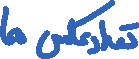 تعدادعکس ها